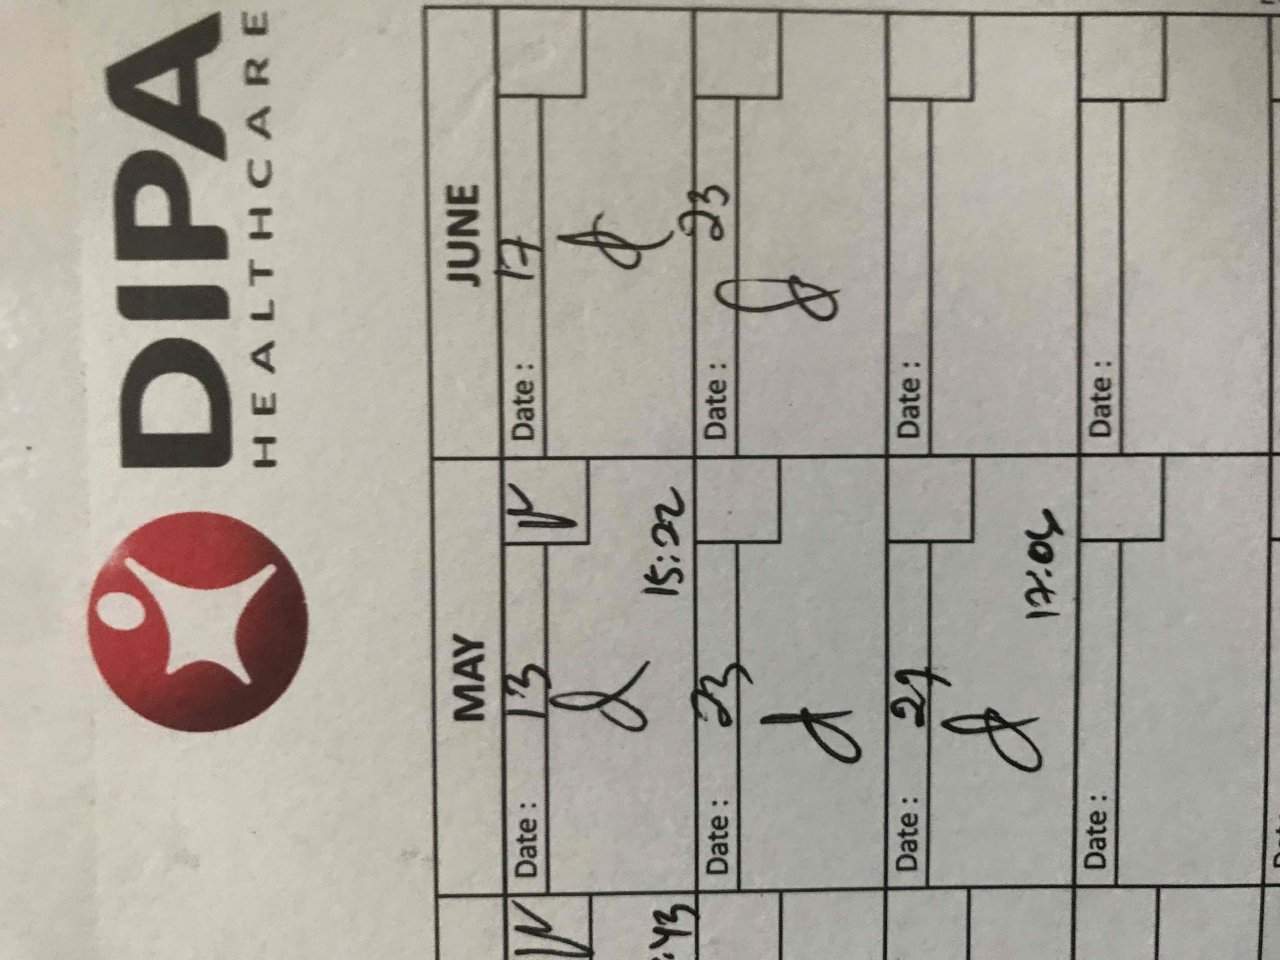 DIPA
HEALTHCARE
MAY JUNE
Date : 13 Date : 17
15:22
Date : 23 Date : 23
Date : 27 Date :
17:04
Date : Date :
:43